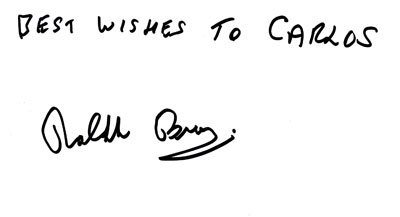 BEST WISHES TO CARLOS
Ralph